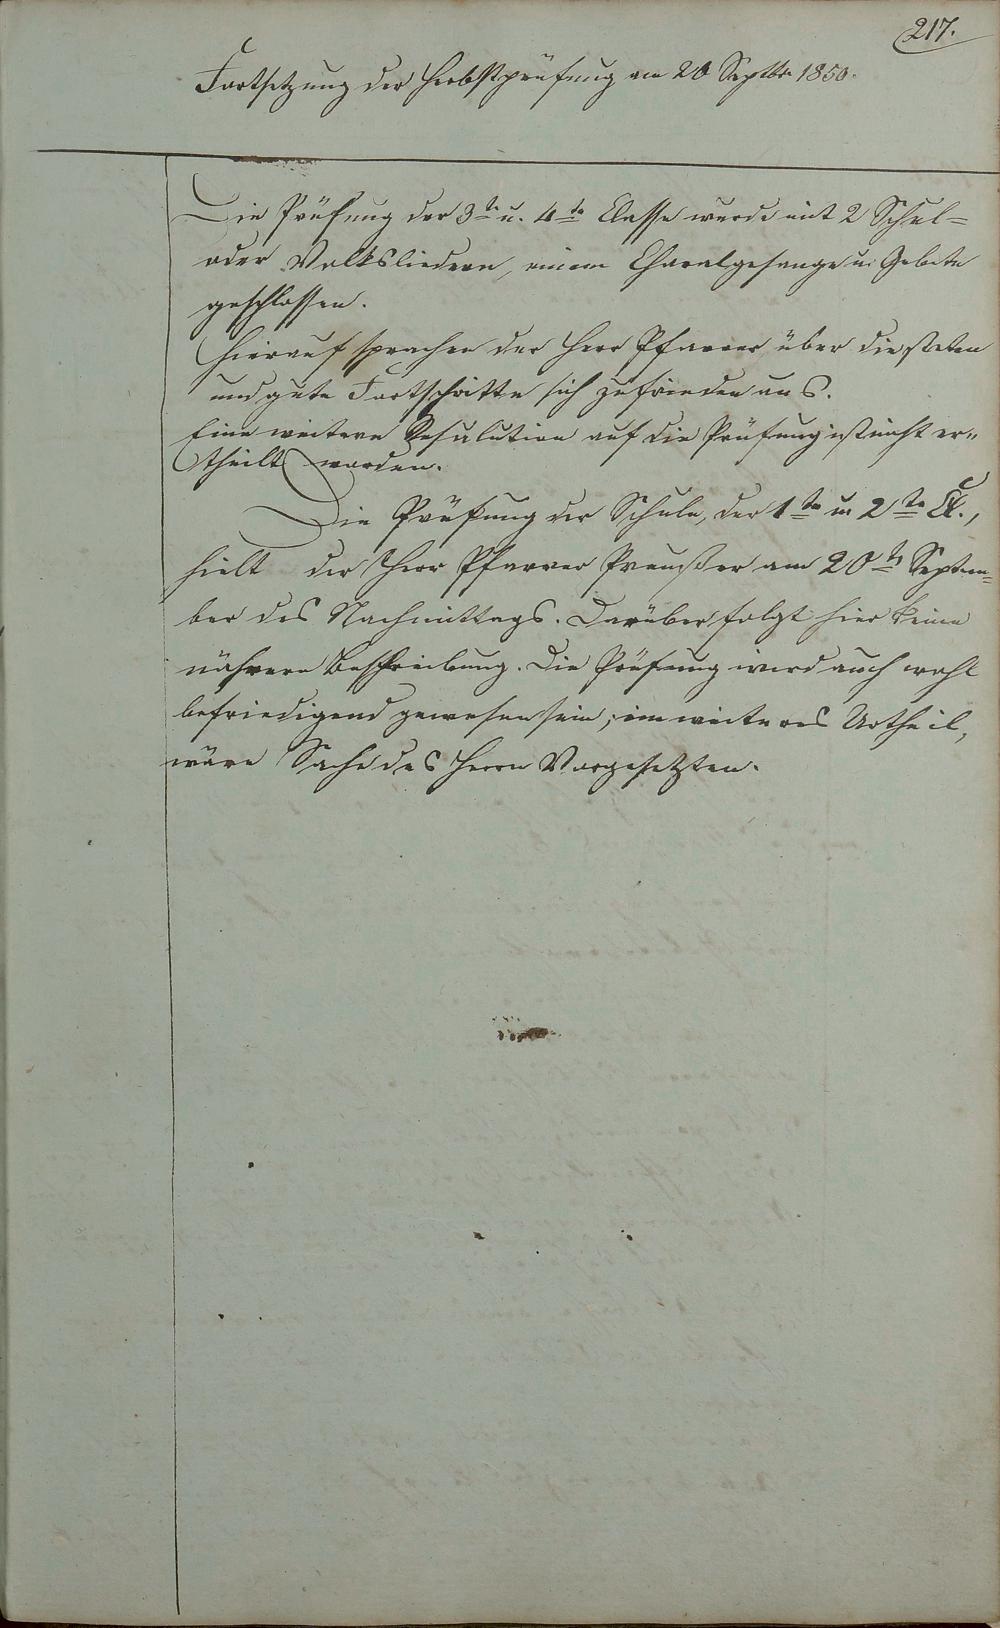 217.
Fortsetzung der Herbstprüfung am 20 Septbr 1850.
Die Prüfung der 3te u. 4te Classe wurde mit 2 Schul=
oder Volksliedern, einem Choralgesange u. Gebete
geschlossen.
Hierauf sprachen der Herr Pfarrer über die steten
und gute Fortschritte sich zufrieden aus.
Eine weitere Resolution auf die Prüfung ist nicht er„
theilt worden.
Die Prüfung der Schule, der 1te u 2te Cl.,
hielt der Herr Pfarrer Preußer am 20te Septem=
ber des Nachmittags. Darüber folgt hier keine
nährere Beschreibung. Die Prüfung wird auch wohl
befriedigend gewesen sein; ein weiteres Urtheil,
wäre Sache des Herrn Vorgesetzten.